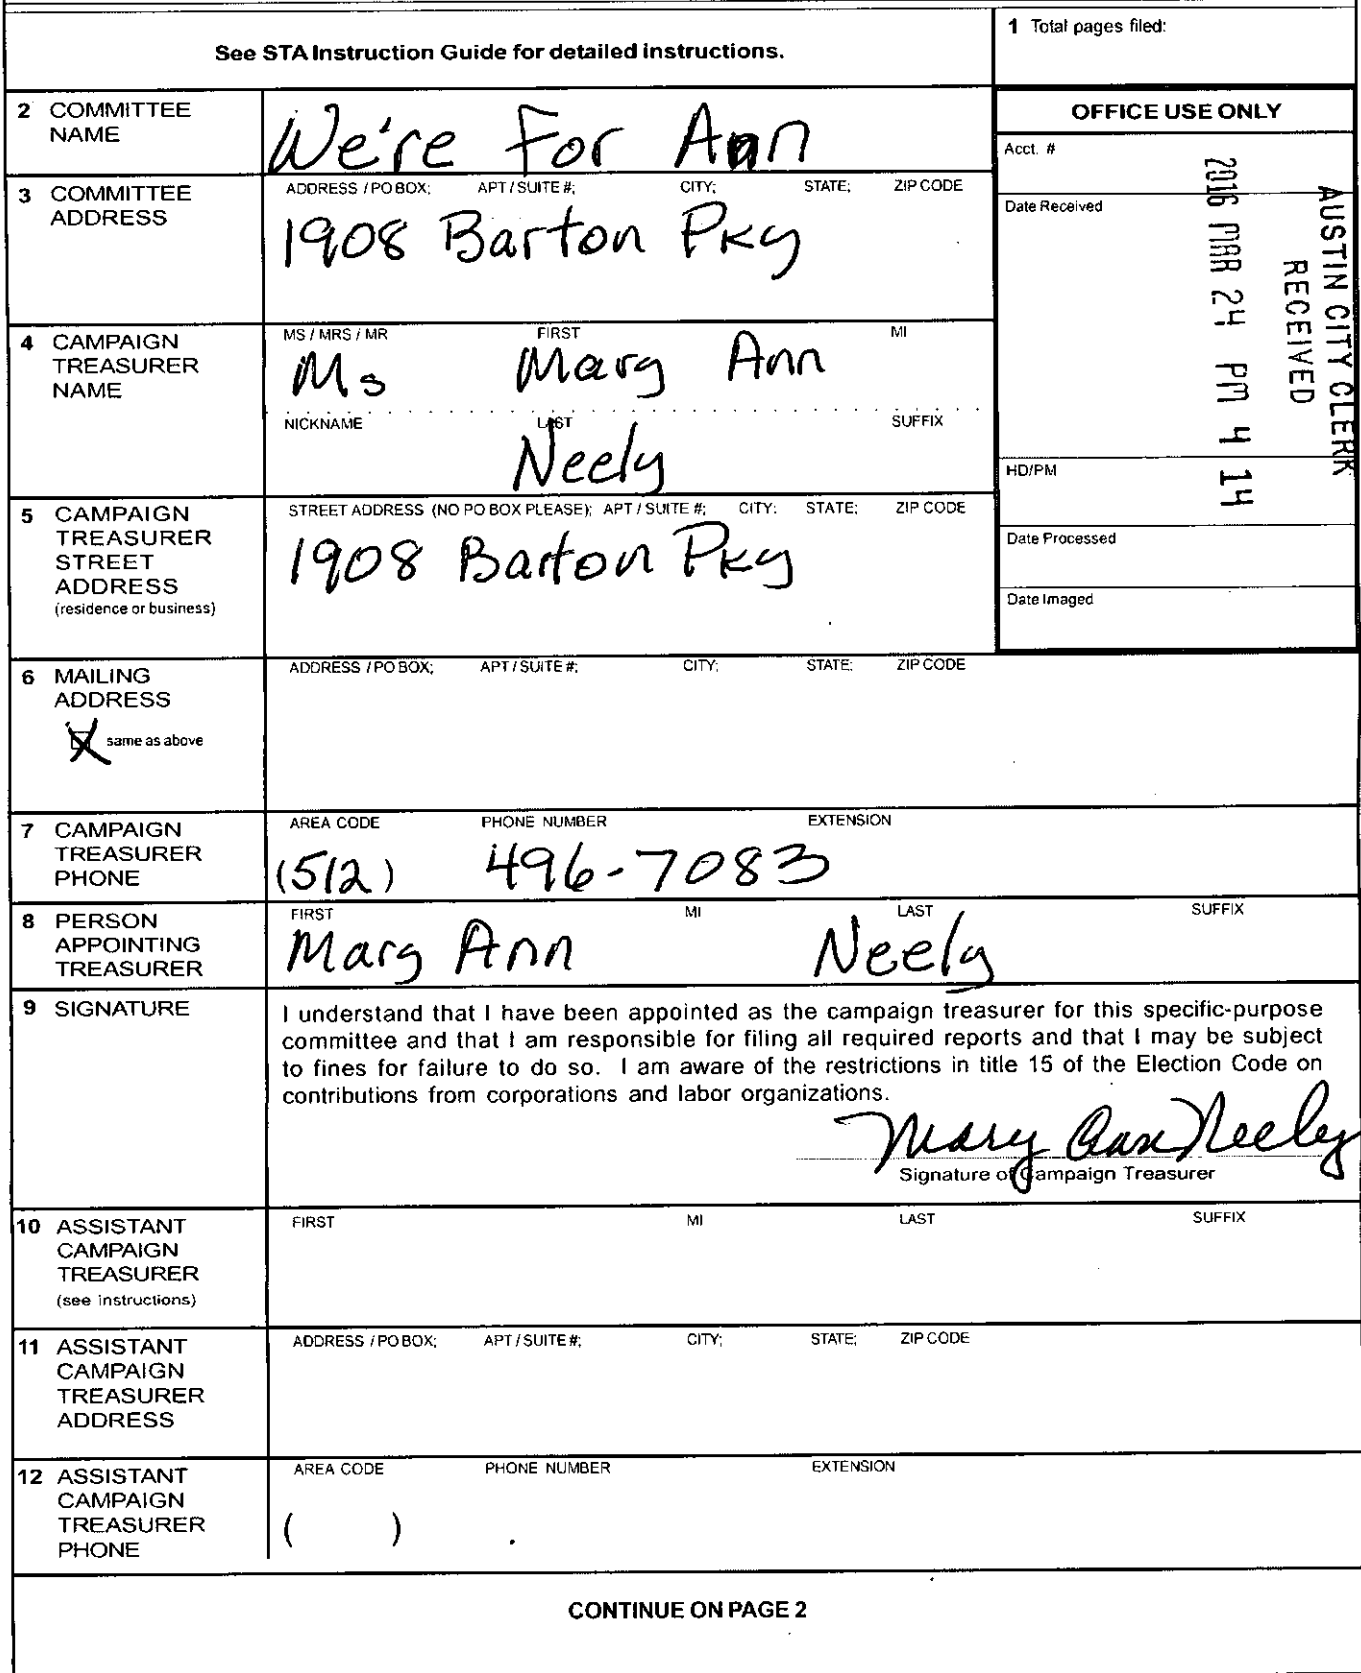 See STA Instruction Guide for detailed instructions.
1 Total pages filed:
2 COMMITTEE NAME
We're For Ann
OFFICE USE ONLY
Acct. #
Date Received
AUSTIN CITY CLERK
RECEIVED
2016 MAR 24 PM 4 14
HD/PM
Date Processed
Date Imaged
3 COMMITTEE ADDRESS
ADDRESS / PO BOX; APT / SUITE #; CITY; STATE; ZIP CODE
1908 Barton Pky
4 CAMPAIGN TREASURER NAME
MS / MRS / MR FIRST MI
Ms Mary Ann
NICKNAME LAST SUFFIX
Neely
5 CAMPAIGN TREASURER STREET ADDRESS
(residence or business)
STREET ADDRESS (NO PO BOX PLEASE); APT / SUITE #; CITY; STATE; ZIP CODE
1908 Barton Pky
6 MAILING ADDRESS
same as above
ADDRESS / PO BOX; APT / SUITE #; CITY; STATE; ZIP CODE
7 CAMPAIGN TREASURER PHONE
AREA CODE PHONE NUMBER EXTENSION
(512) 496-7083
8 PERSON APPOINTING TREASURER
FIRST MI LAST SUFFIX
Mary Ann Neely
9 SIGNATURE
I understand that I have been appointed as the campaign treasurer for this specific-purpose
committee and that I am responsible for filing all required reports and that I may be subject
to fines for failure to do so. I am aware of the restrictions in title 15 of the Election Code on
contributions from corporations and labor organizations.
Mary Ann Neeley
Signature of Campaign Treasurer
10 ASSISTANT CAMPAIGN TREASURER
(see instructions)
FIRST MI LAST SUFFIX
11 ASSISTANT CAMPAIGN TREASURER ADDRESS
ADDRESS / PO BOX; APT / SUITE #; CITY; STATE; ZIP CODE
12 ASSISTANT CAMPAIGN TREASURER PHONE
AREA CODE PHONE NUMBER EXTENSION
( )
CONTINUE ON PAGE 2